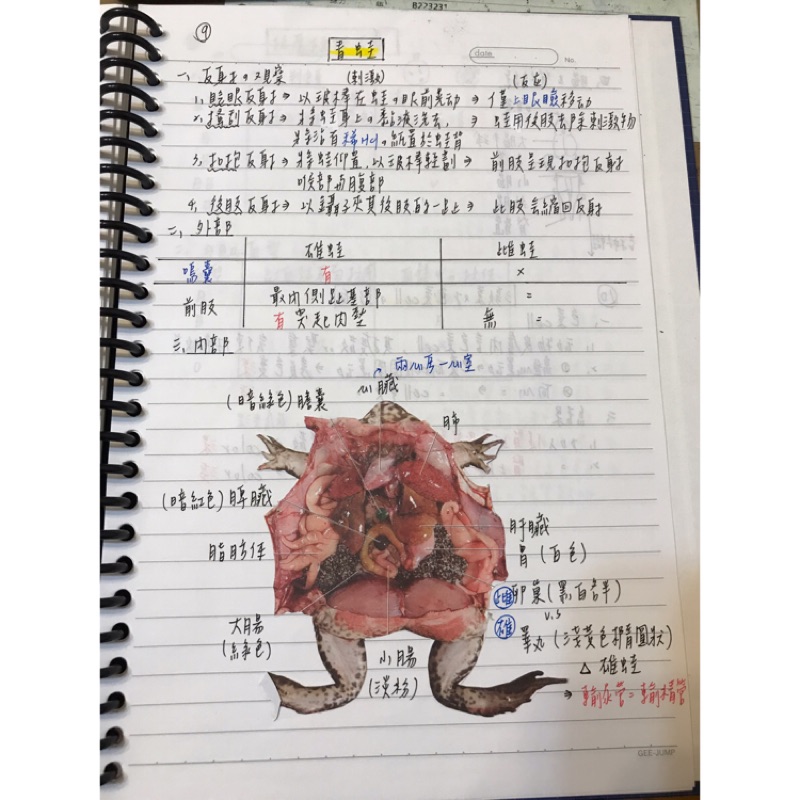 B223231
⑨
青蛙
date
No.
一、反射の觀察 (刺激) (反應)
1. 眨眼反射⇒以玻棒在蛙の眼前晃動 ⇒ 僅上眼瞼移動
2. 搔刮反射⇒ 蛙身上の黏液洗去, ⇒ 蛙用後肢去除刺激物
將沾有稀HClの紙置於蛙背
3. 抱抱反射⇒將蛙仰置,以玻棒輕劃⇒ 前肢呈現抱抱反射
喉部與腹部
4. 後肢反射⇒以鑷子夾其後肢的一趾⇒ 此肢會縮回反射
二、外部
雄蛙 雌蛙
鳴囊 有 ×
前肢 最內側趾基部 =
有突起肉墊 無 =
三、內部
兩心房一心室
心臟
(暗綠色)膽囊
肺
(暗紅色)脾臟
肝臟
脂肪体
胃(白色)
雌 卵巢(黑白各半)
v.s
大腸
(綠色)
雄 睪丸(淺黃色橢圓狀)
小腸
(淡粉)
△ 雄蛙
⇒輸尿管=輸精管
GEE-JUMP